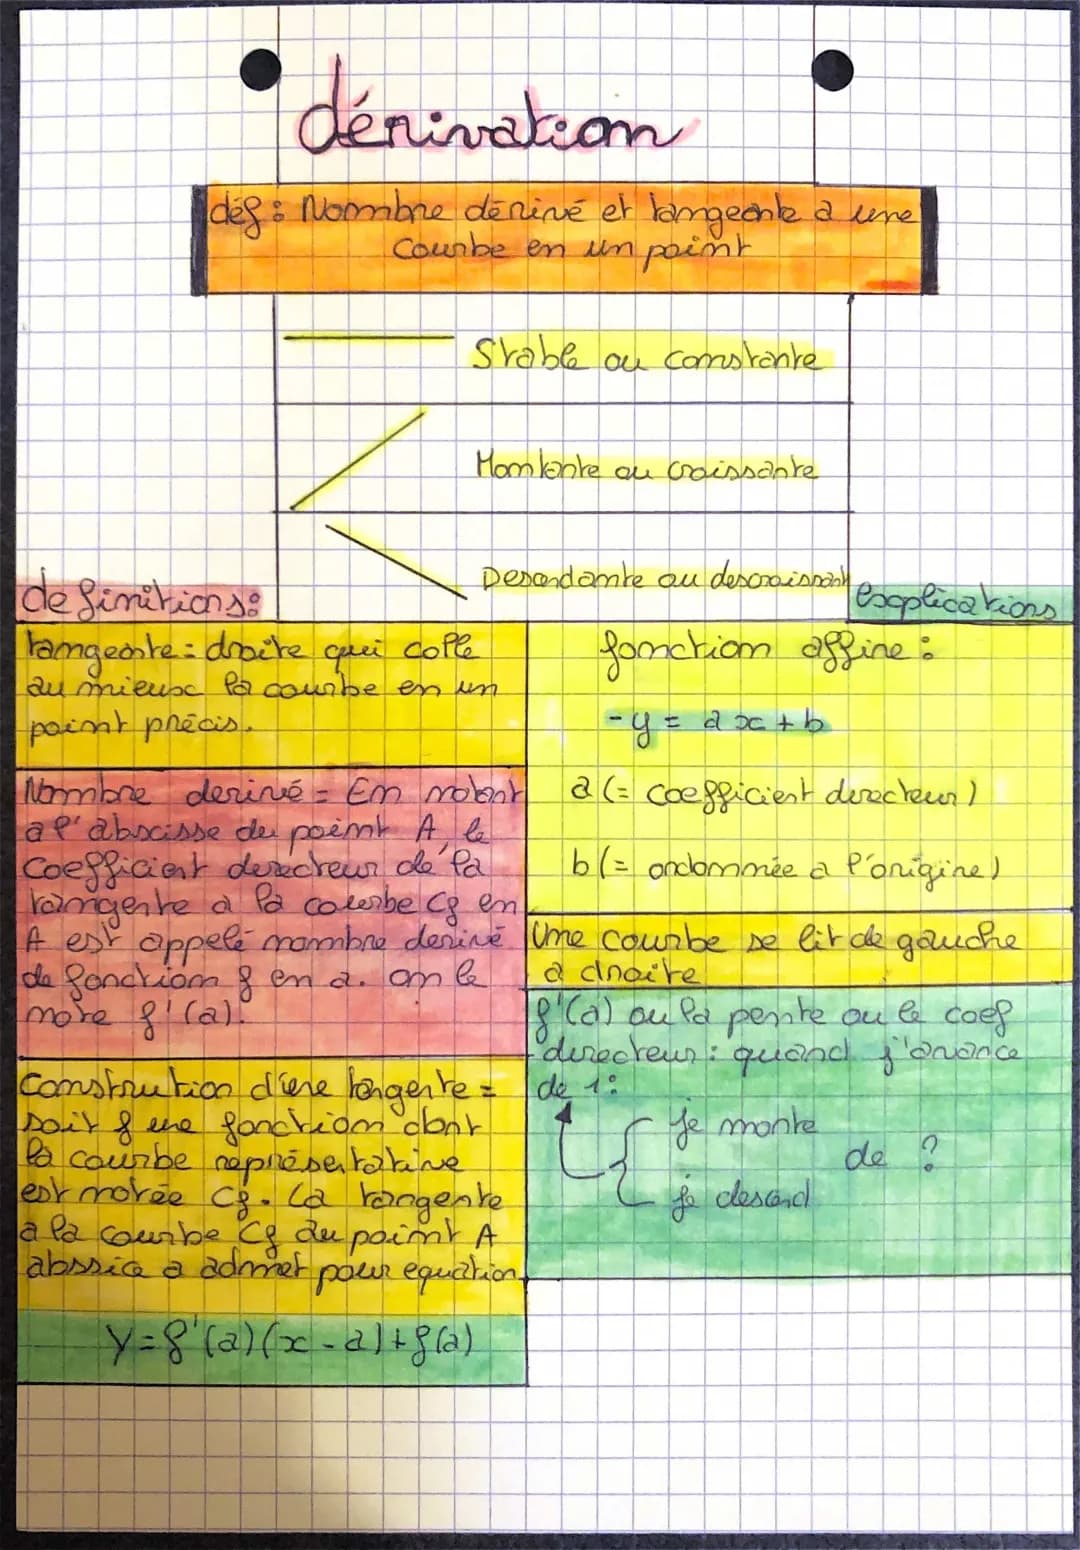 dérivation
déf : Nombre dérivé et tangeante a une
courbe en un point
Stable ou constante
Montante ou croissante
Descendante ou descroissant
definitions:
explications
tangeante = droite qui colle
au mieux la courbe en un
point précis.
Nombre derivé = En notant
a l'abscisse du point A, le
coefficient derecteur de la
tangente a la courbe Cf en
A est appelé nombre derivé
de fonction f en a. on le
note f'(a).
Constrution d'une tangente =
soit f une fonction dont
la courbe représentative
est notée Cf. La tangente
a la courbe Cf au point A
abssice a admet pour equation
y=f'(a)(x-a)+f(a)
fonction affine :
-y = ax+b
a (= coefficient derecteur)
b (= ordonnée a l'origine)
Une courbe se lit de gauche
a droite
f'(a) ou la pente ou le coef
directeur : quand j'avance
de 1:
je monte
de ?
je descend